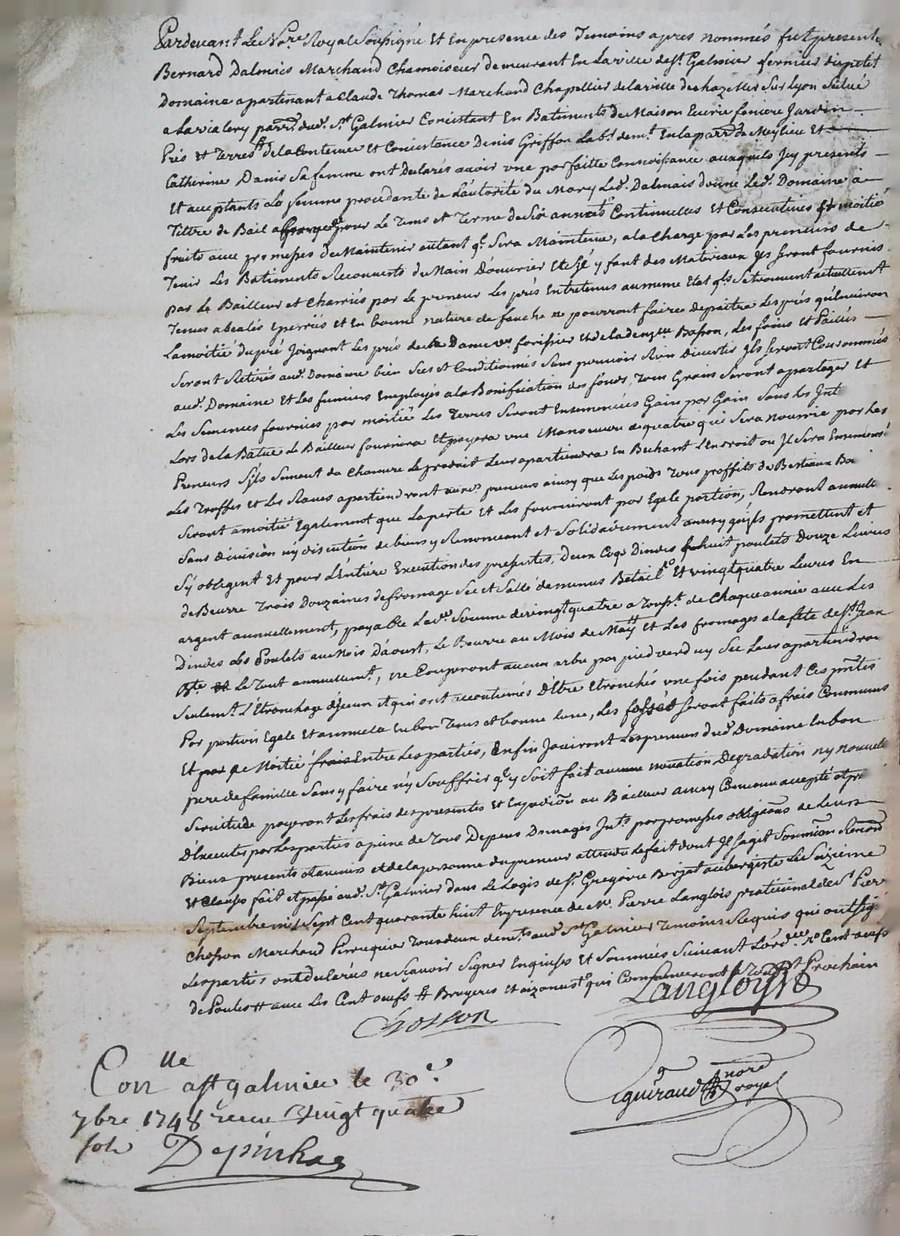 Pardevant Le No.re Royal Soussigné Et En presence des Temoins apres nommés fut present
Bernard Dalmais Marchand Chamoiseur demeurant En La ville de St. Galmier fermier
Domaine apartenant a Claude Thomas Marchand Chapellier de la ville de chazelles Sur Lyon Scitué
a Lavialery parr.e dud. St. Galmier Consistant En Batiments de Maison Ecurie feniere Jardin
Prés et Terres de la Contenue Et Consistance Denis Griffon Lab.r dem.t En la parr.e de Meylieu Et
Catherine Danis Sa femme ont Declarés avoir une parfaitte Connoissance auxquels Icy presents
Et acceptants La femme procedante de L'autorité du Mary Led. Dalmais donne Led. Domaine a
Tittre de Bail a pour Le Tems et Terme de Six années Continuelles Et Consecutives Et moitié
fruits avec promesses de Maintenir autant q. Sera Maintenu, a la Charge par Les preneurs de
Tenir Les Batiments Recouverts de Main D'ouvrier Et y faut des Materiaux Ils Seront fournis
par Le Bailleur et Charriés par Le preneur Les prés Entretenus au meme Etat qls Se trouvent actuellement
Tenus a bealés Eperriés et En bonne nature de fauche ne pourront faire depaitre Les prés qu'environ
La moitié du pré Joignant Les prés de la Dame forissier Et de la dem.lle Basson, Les foins Et Pailles
Seront Retirés aud. Domaine bien Secs et Conditionnés Sans pouvoir Rien divertir Ils Seront Consommés
aud. Domaine Et Les fumiers Employés a la Bonification des fonds, Tous Grains Seront a partager Et
Les Semences fournies par moitié Les Terres Seront Ensemencées Gain par Gain Sans
Lors de la Batue Le Bailleur fournira Et payera une Manoeuvre de quatre qui Sera nourrie par Les
Preneurs S'ils Sement du Chanvre Le produit Leur apartiendra En Bechant L'Endroit ou Il Sera Ensemencé
Les Troffes et Les Raves apartiendront aux preneurs ainsy que Les poids Tous proffits de Bestiaux
Seront a moitié Egalement que La perte Et Les fourniront par Egale portion, Rendront
Sans division ny discution de biens y Renoncant et Solidairement ainsy qu'ils promettent et
S'y obligent Et pour L'Entiere Execution des presentes, Deux Coqs d'indes huit poulets Douze Livres
de Beurre Trois Douzaines de fromage Sec et Sallé de menus Betail Et vingt quatre Livres En
argent annuellement, payable Lad. Somme de vingt quatre a de Chaque année avec Les
Dindes Les Poulets au Mois D'aoust, Le Beurre au Mois de May Et Les fromages a la fete de St. Jean
Le Tout annuellement, ne Couperont aucun arbre par pied verd ny Sec Leur apartiendra
Seulem.t L'Etronchage qui ont accoutumés D'Etre Etronchés une fois pendant Ces p.ntes
Par portion Egale et annuelle En bon Tems et bonne Lune, Les fossés Seront faits a frais Communs
Et par Moitié Entre Les parties, Enfin Jouiront Les preneurs dud. Domaine En bon
pere de famille Sans y faire n'y Souffrir q.l y Soit fait aucune novation Degradation ny nouvelle
Servitude payeront Les frais des presentes et Expedion au Bailleur ainsy Convenu accepté
D'Executer par Les parties a peine de Tous Depens Domages Int.s par promesses obligeons de Leurs
Biens presents et avenir et de la personne du preneur attendu Le fait dont Il S'agit Soumission
Et Clauses fait Et passé aud. St. Galmier dans Le Logis de Sr. Gregoire Berjat aubergiste Le Seizieme
Septembre mil Sept Cent quarante huit En presence de M.e Pierre Langlois praticien et de Sr. Pierre
Chosson Marchand Perruquier dem.ts aud. St. Galmier Temoins Requis qui ont
Les parties ont declarées ne Scavoir Signer Enquises Et Sommées Suivant L'ord.ce
de Poules avec Les Cent oeufs qui Commenceront a Prochain
Chosson
Langlois
Conlle a St galmier le 30e
7bre 1748 receu Vingt quatre
sols Depinhac
guiraud no.re royal